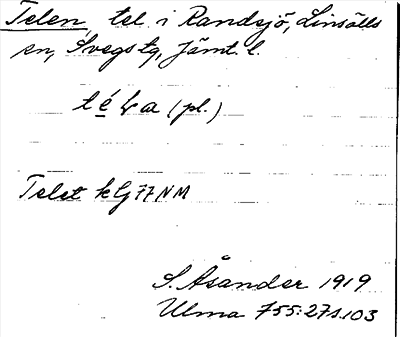 Telen, tel i Randsjö, Linsälls
sn, Svegs tg, Jämt l.
(pl.)
Telet kG 77 NM
S. Åsander 1919
Ulma 755:27 s. 103